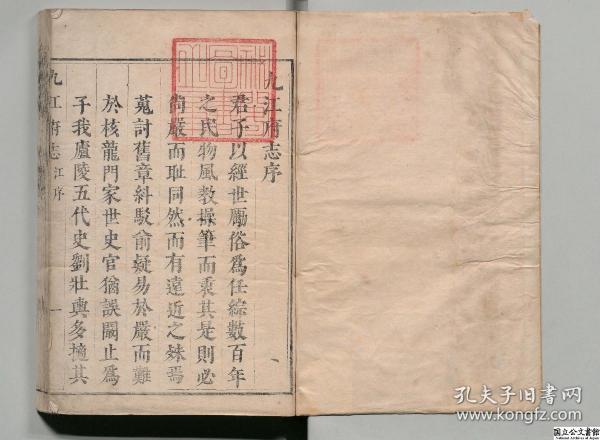 九江府志序
君子以經世厲俗爲任綜數百年
之民物風教操筆而乘其是則必
尚嚴而耻同然而有遠近之殊焉
蒐討舊章糾駁俞疑易於嚴而難
於核龍門家世史官猶誤闞止爲
子我廬陵五代史劉壯輿多摘其
九江府志 江序 一
孔夫子旧书网
www.kongfz.com
国立公文書館
National Archives of Japan